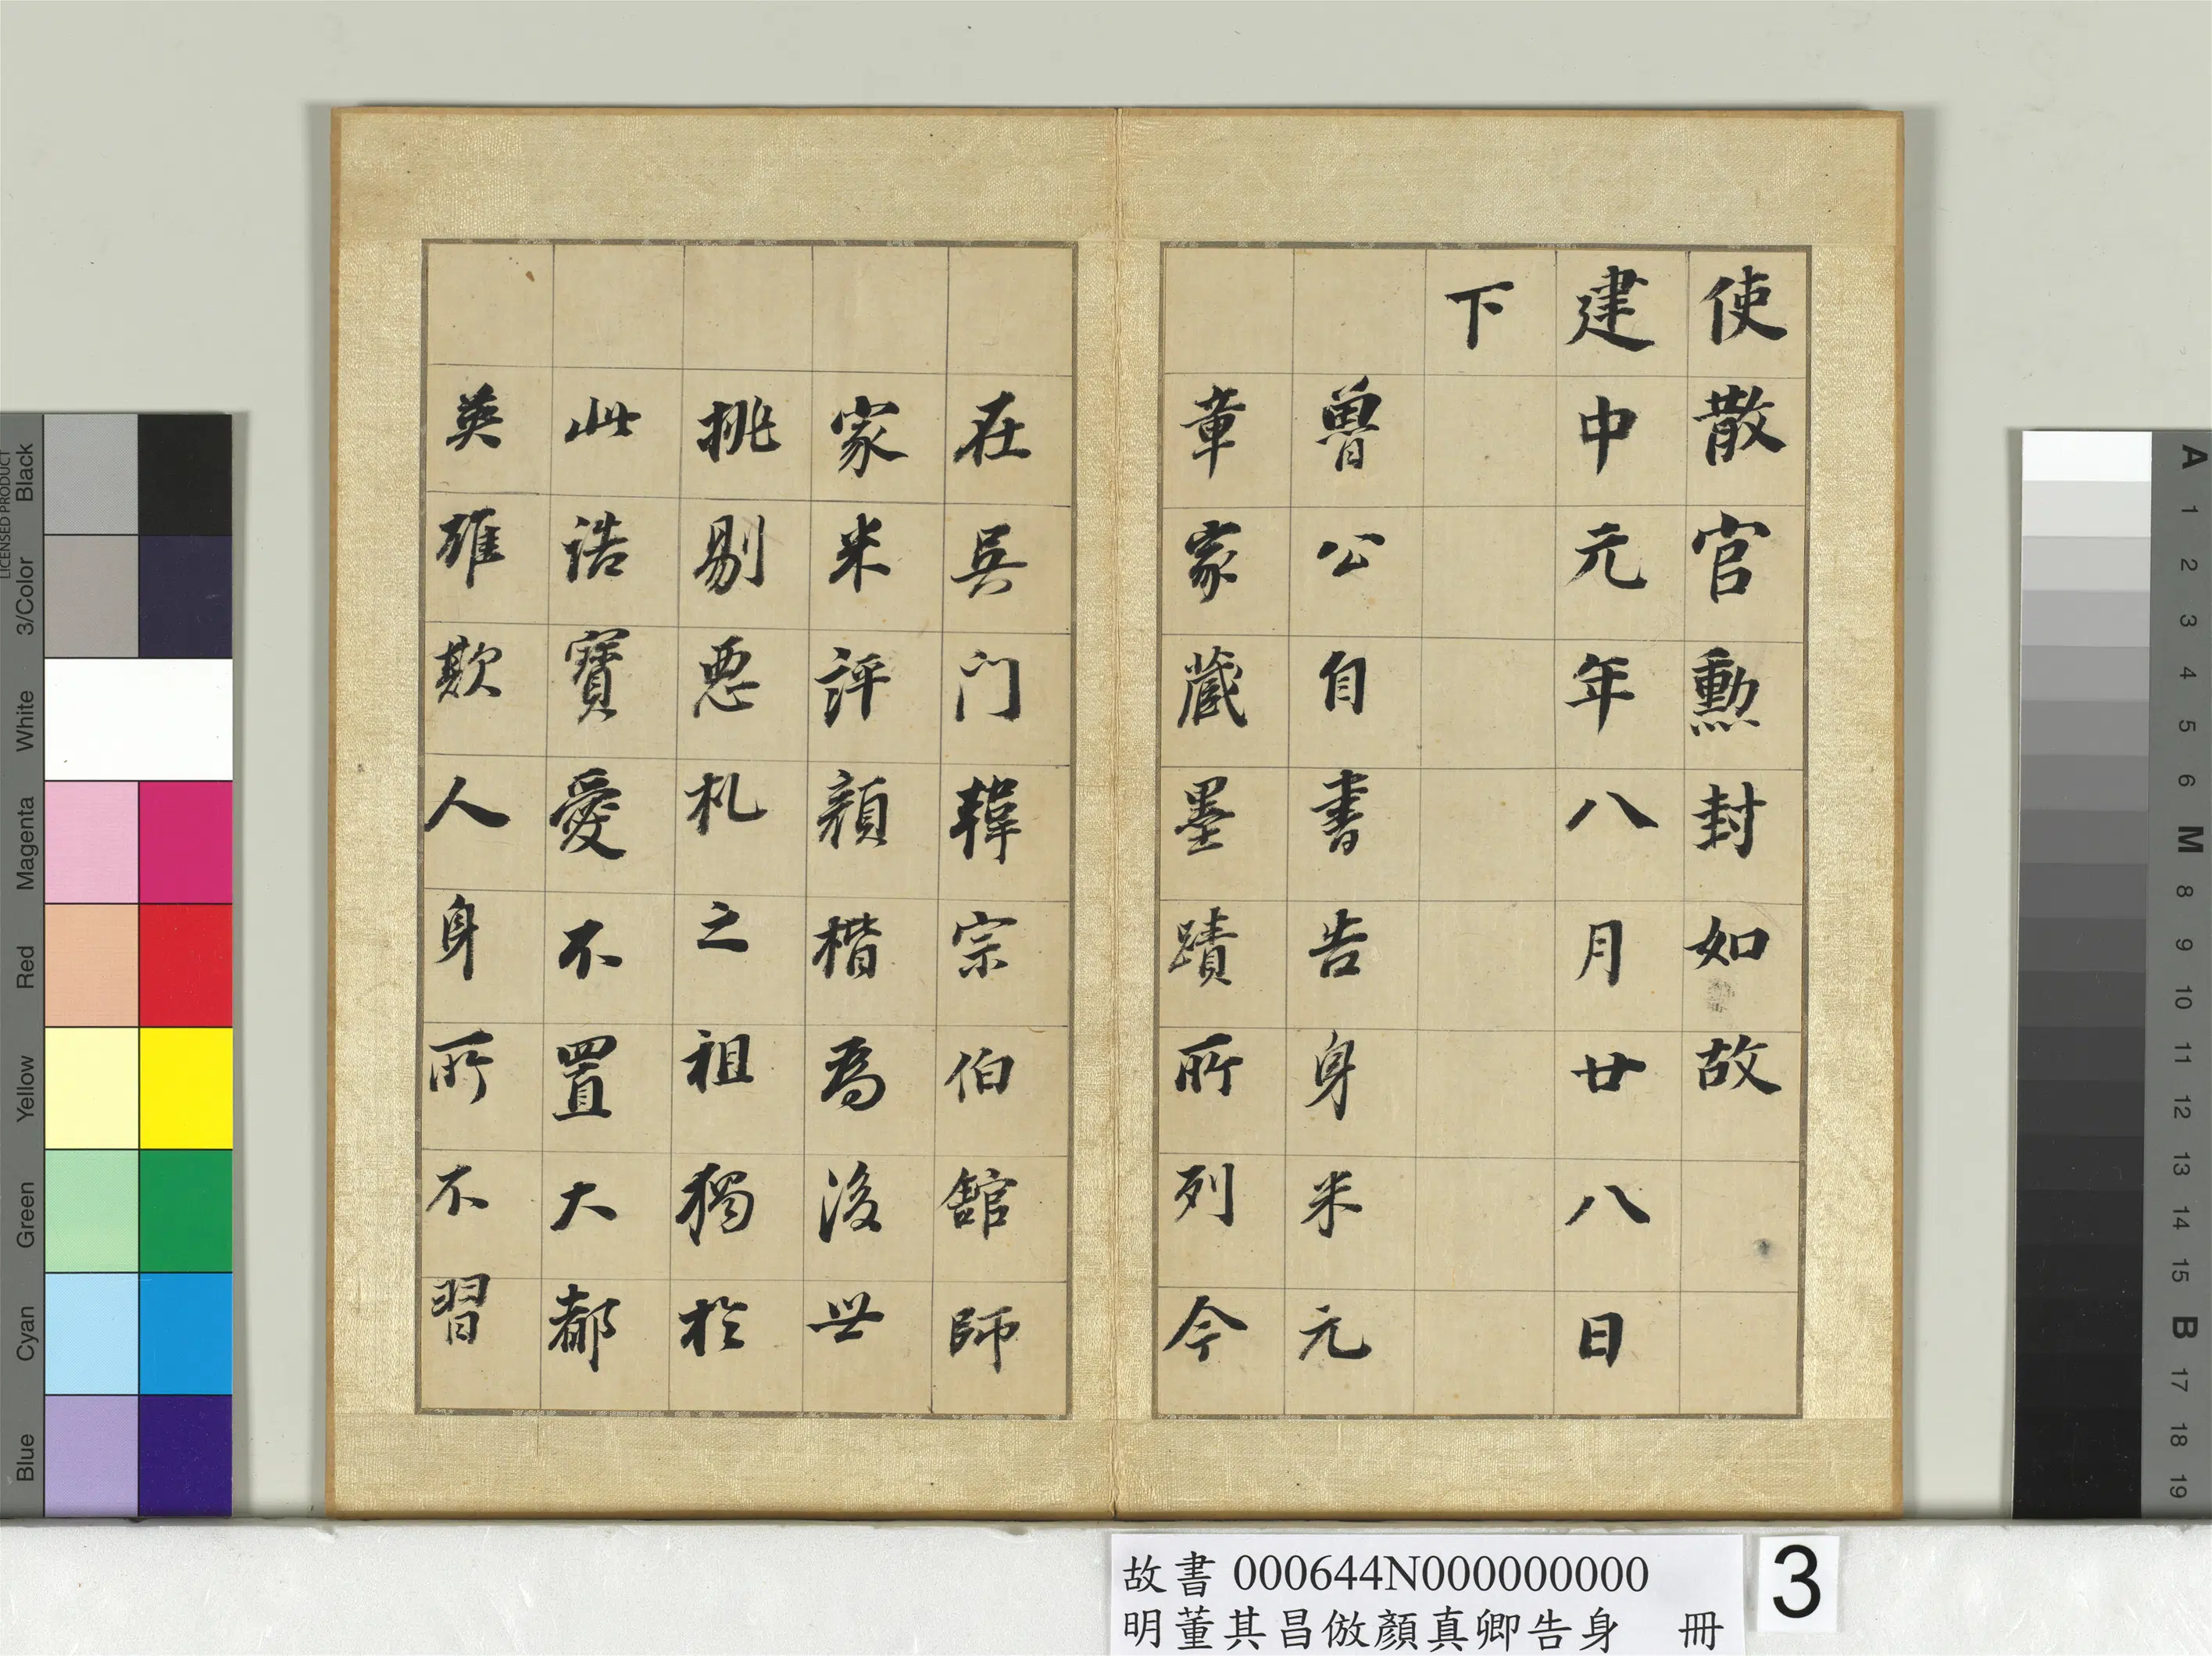 使散官勳封如故
建中元年八月廿八日
下
魯公自書告身米元
章家藏墨蹟所列今
在吳門韓宗伯館師
家米評顏楷為後世
挑剔惡札之祖獨於
此誥寶愛不置大都
英雄欺人身所不習
故書 000644N000000000
明董其昌倣顏真卿告身 冊
3
LICENSED PRODUCT
Black
3/Color
White
Magenta
Red
Yellow
Green
Cyan
Blue
A
1
2
3
4
5
6
M
8
9
10
11
12
13
14
15
B
17
18
19